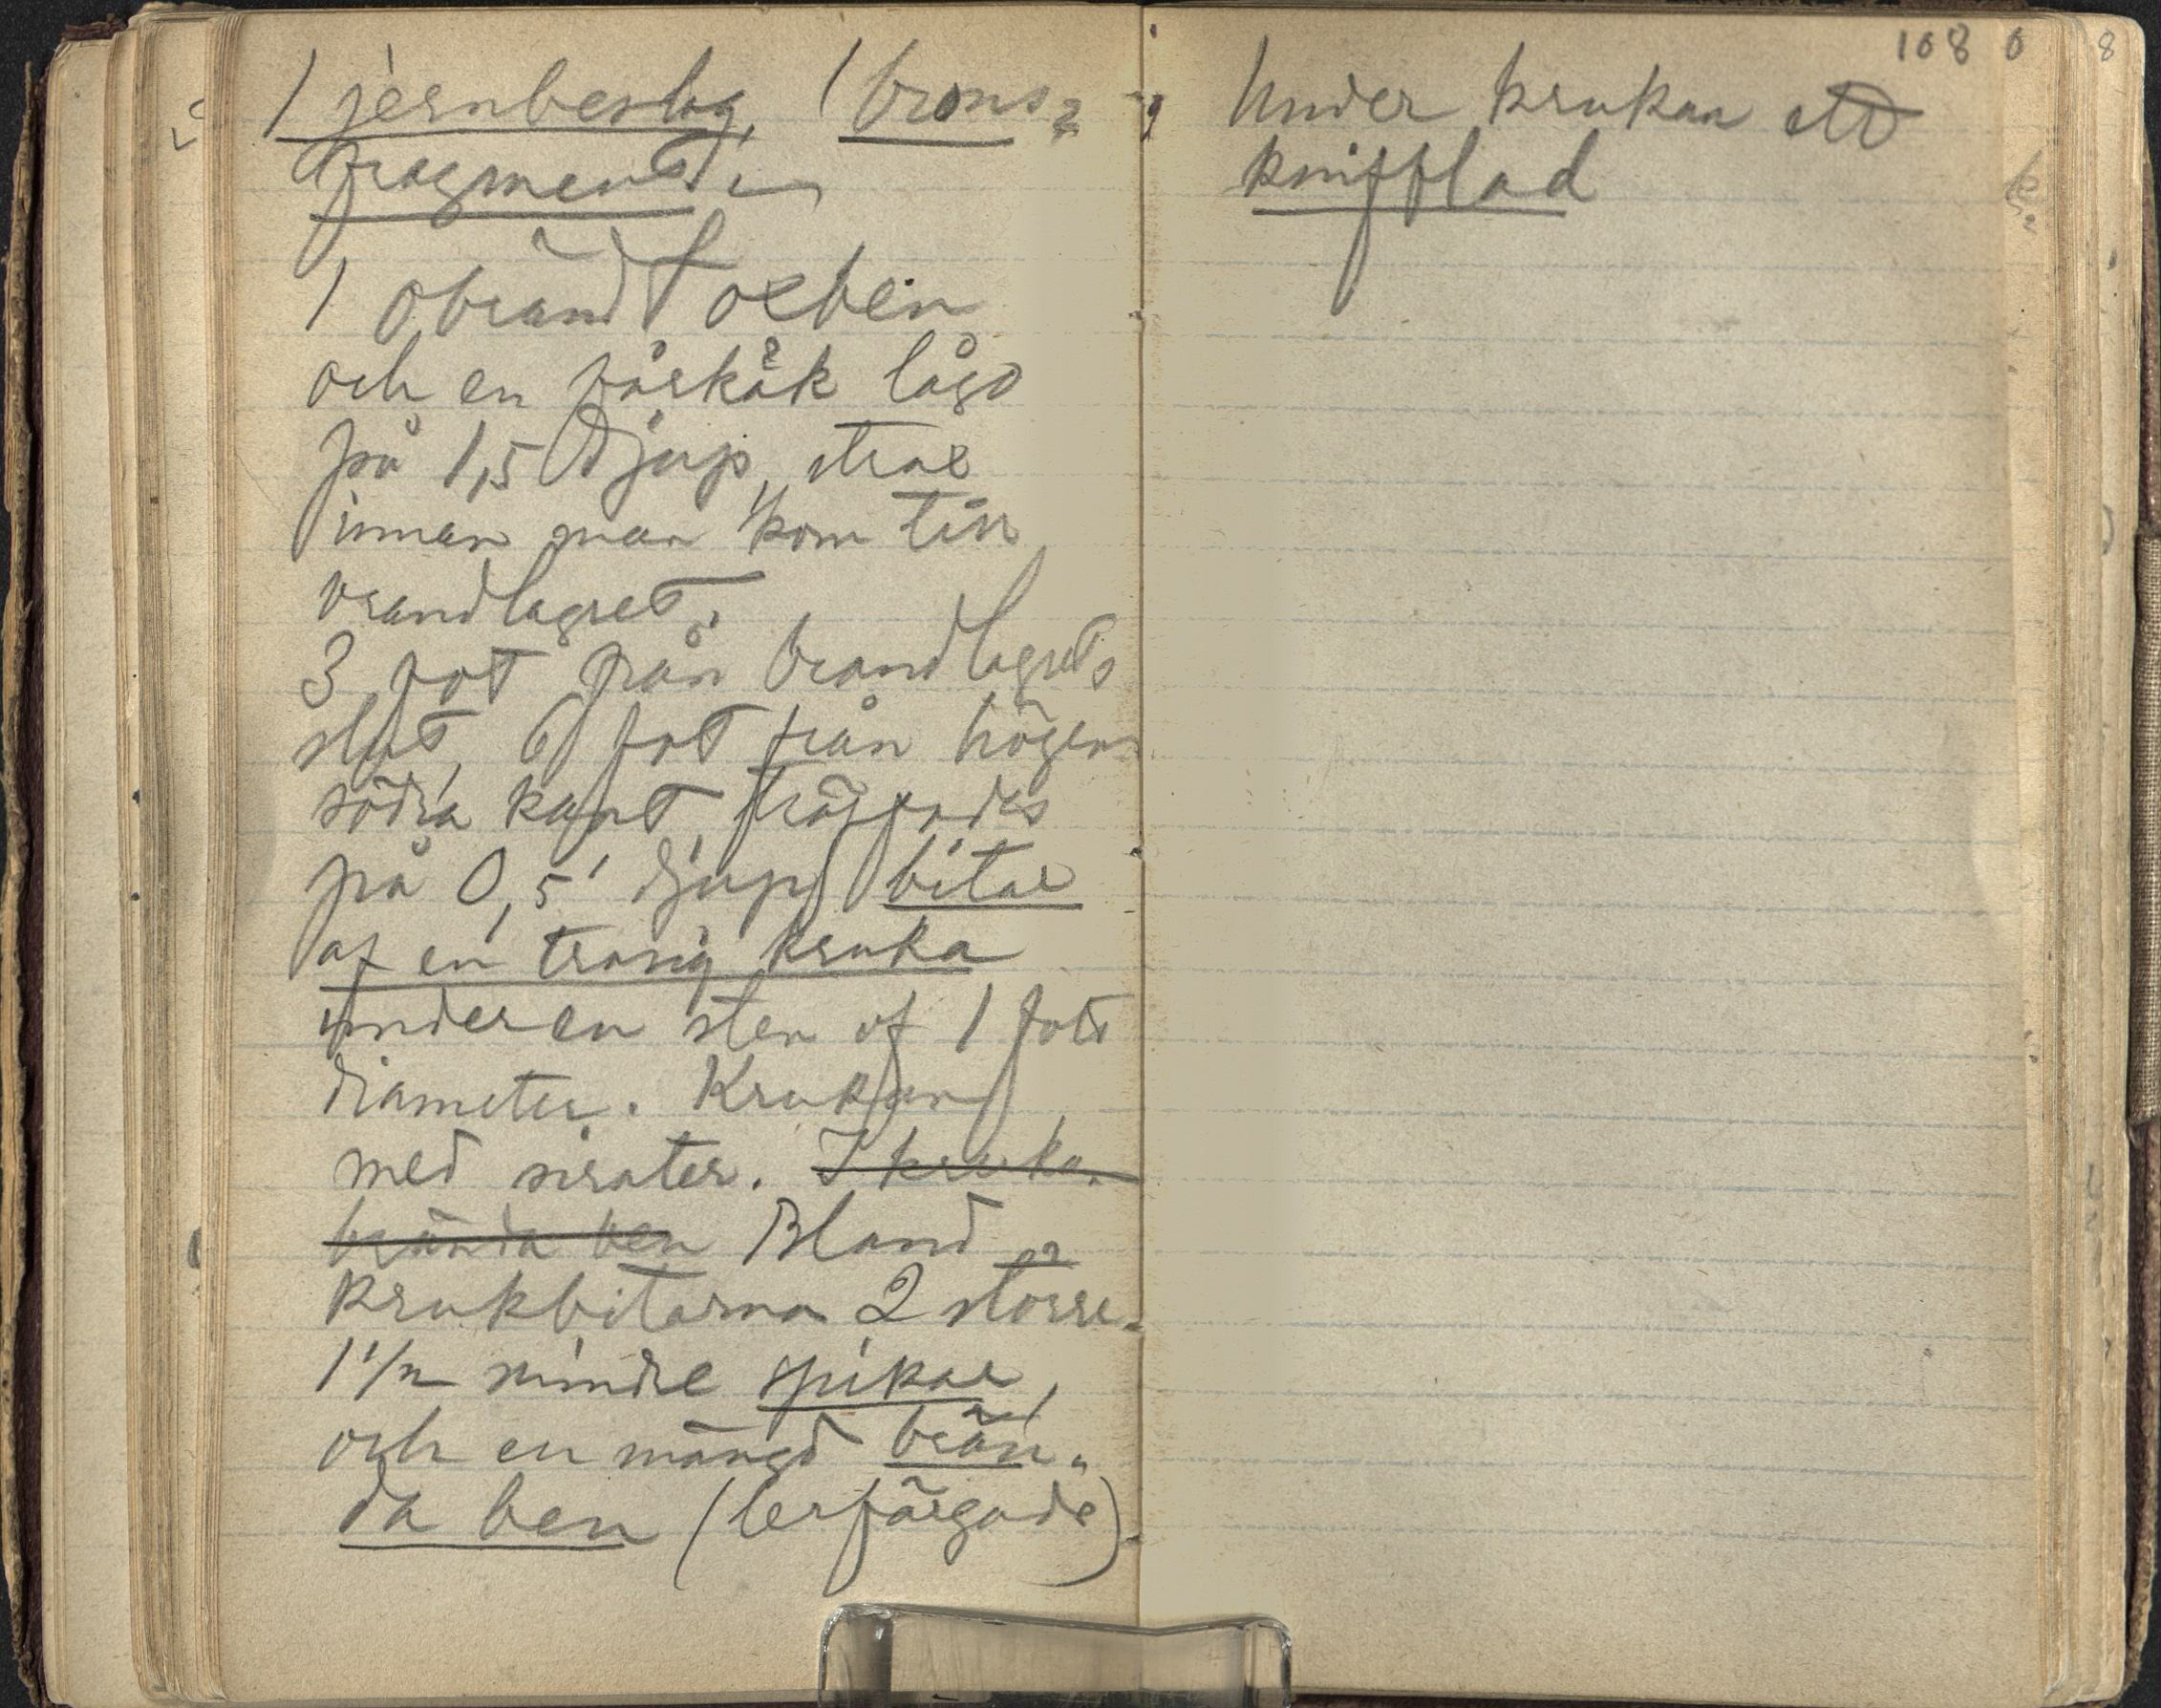 1 jernbeslag, 1 brons-
fragment.
1 obrändt oxben
och en
på 1,5' djup, strax
innan man kom till
brandlagret.
3 fot från brandlagrets
slut, 6 fot från högens
södra kant, träffades
på 0,5' djup bitar
af en trasig kruka
under en sten af 1 fots
diameter. Krukan
med sirater. I kruka
brända ben Bland
krukbitarna 2 större
1 1/2 mindre spikar,
och en mängd brän-
da ben (lerfärgade).
108
Under krukan ett
knifblad